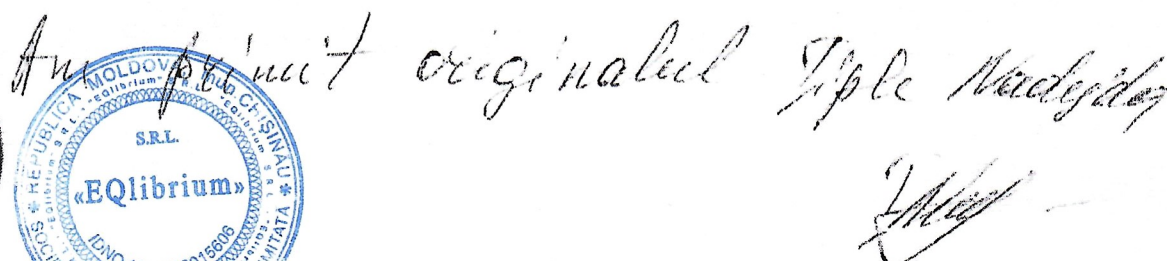 Am primit originalul Țîple Nadejda
REPUBLICA MOLDOVA
CHIȘINĂU
S.R.L.
«EQlibrium»
IDNO
015606